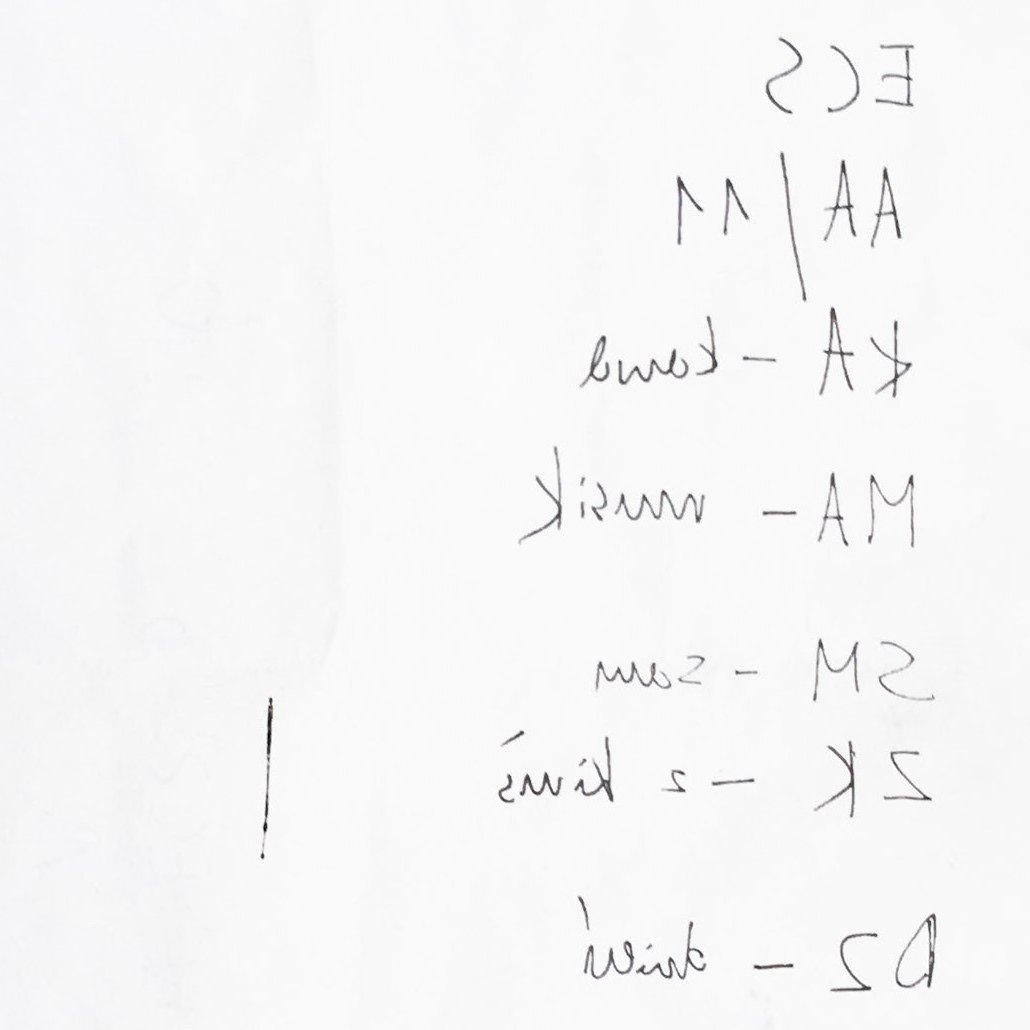 ECS
AA/11
KA - kama
MA - musik
SM - sam
ZK - z kimś
DZ -